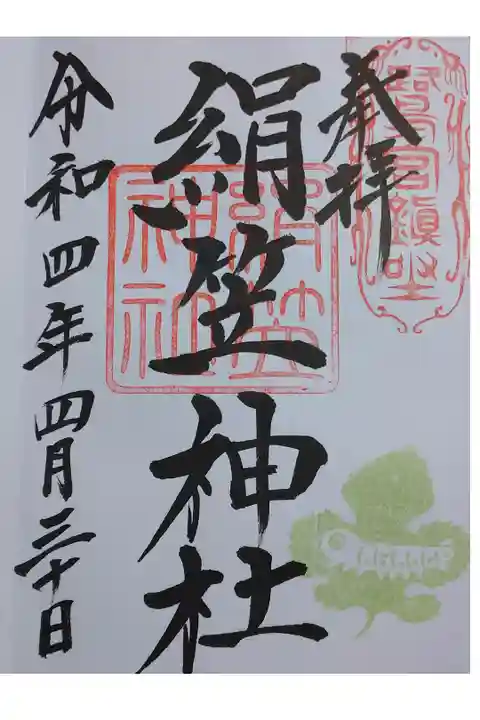 奉拝
絹笠神社
絹笠
神社
令和四年四月三十日